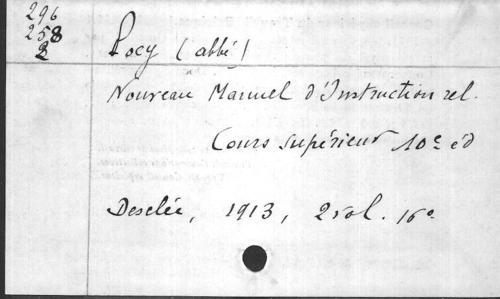 296
258
2
Pocy (abbé)
Nouveau Manuel d'Instruction rel.
Cours supérieur 10e éd
Desclée, 1913, 2 vol. 16o